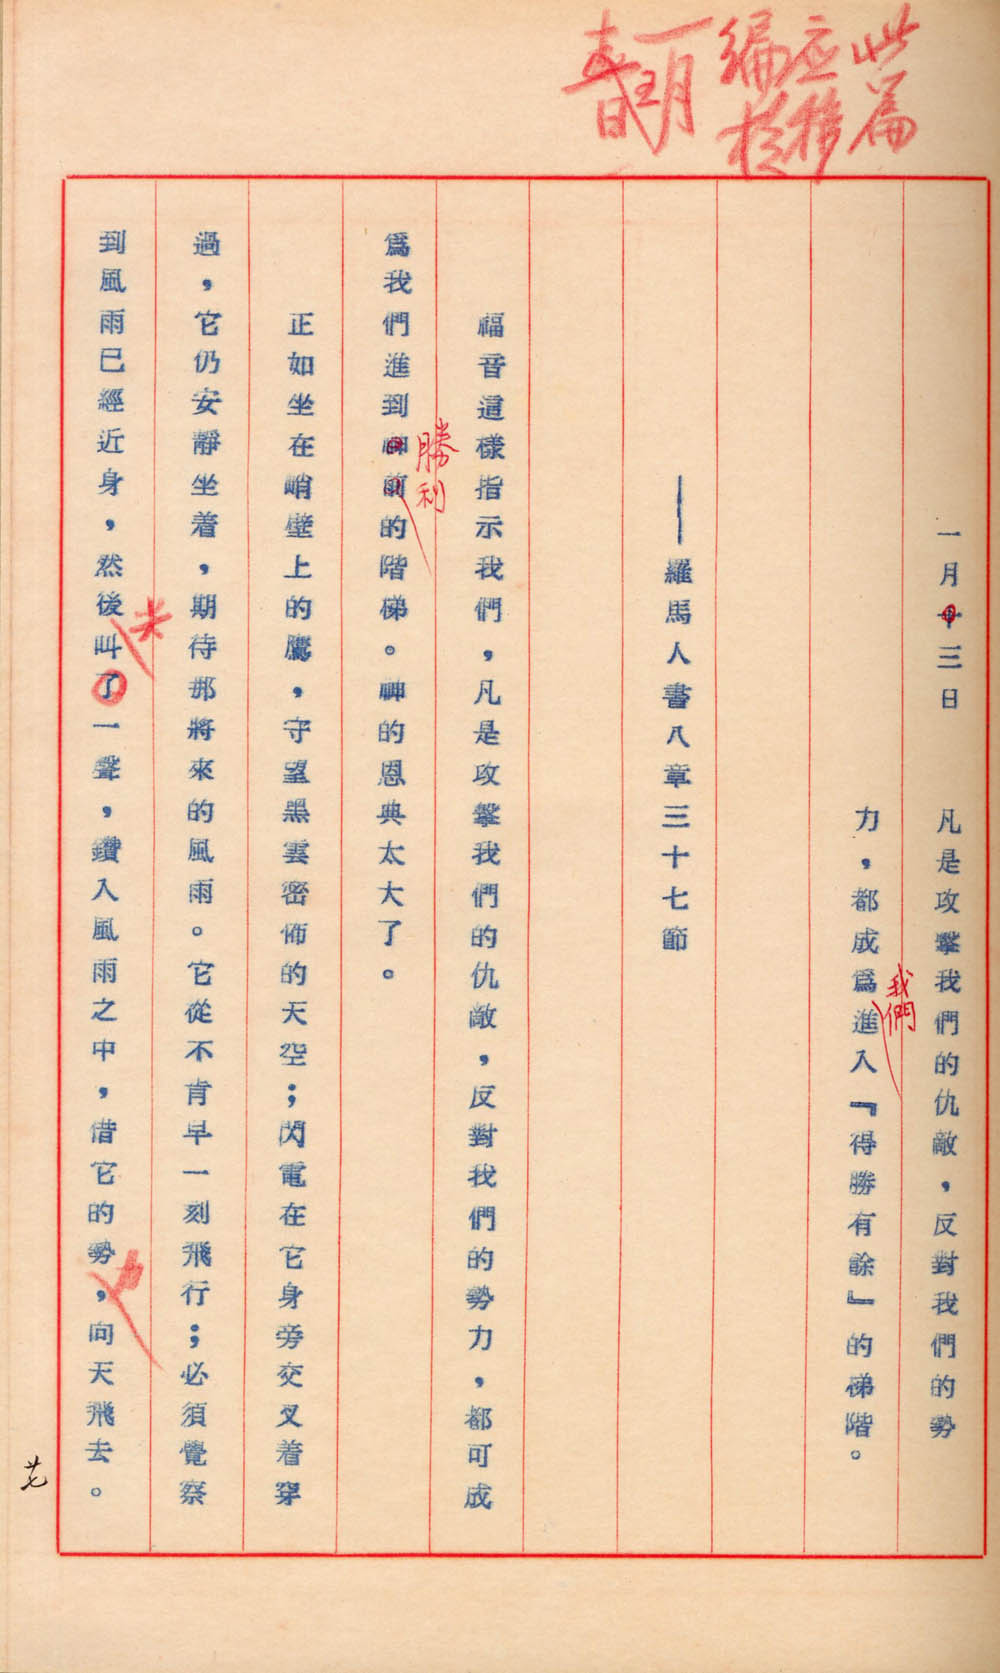 此篇
應移
編於
一月
三日
一月十三日　凡是攻擊我們的仇敵，反對我們的勢
力，都成爲進入『得勝有餘』的梯階。
我們
——羅馬人書八章三十七節
福音這樣指示我們，凡是攻擊我們的仇敵，反對我們的勢力，都可成
勝利
爲我們進到神前的階梯。神的恩典太大了。
正如坐在峭壁上的鷹，守望黑雲密佈的天空；閃電在它身旁交叉着穿
過，它仍安靜坐着，期待那將來的風雨。它從不肯早一刻飛行；必須覺察
到風雨已經近身，然後叫了一聲，鑽入風雨之中，借它的勢，向天飛去。
力
廿七